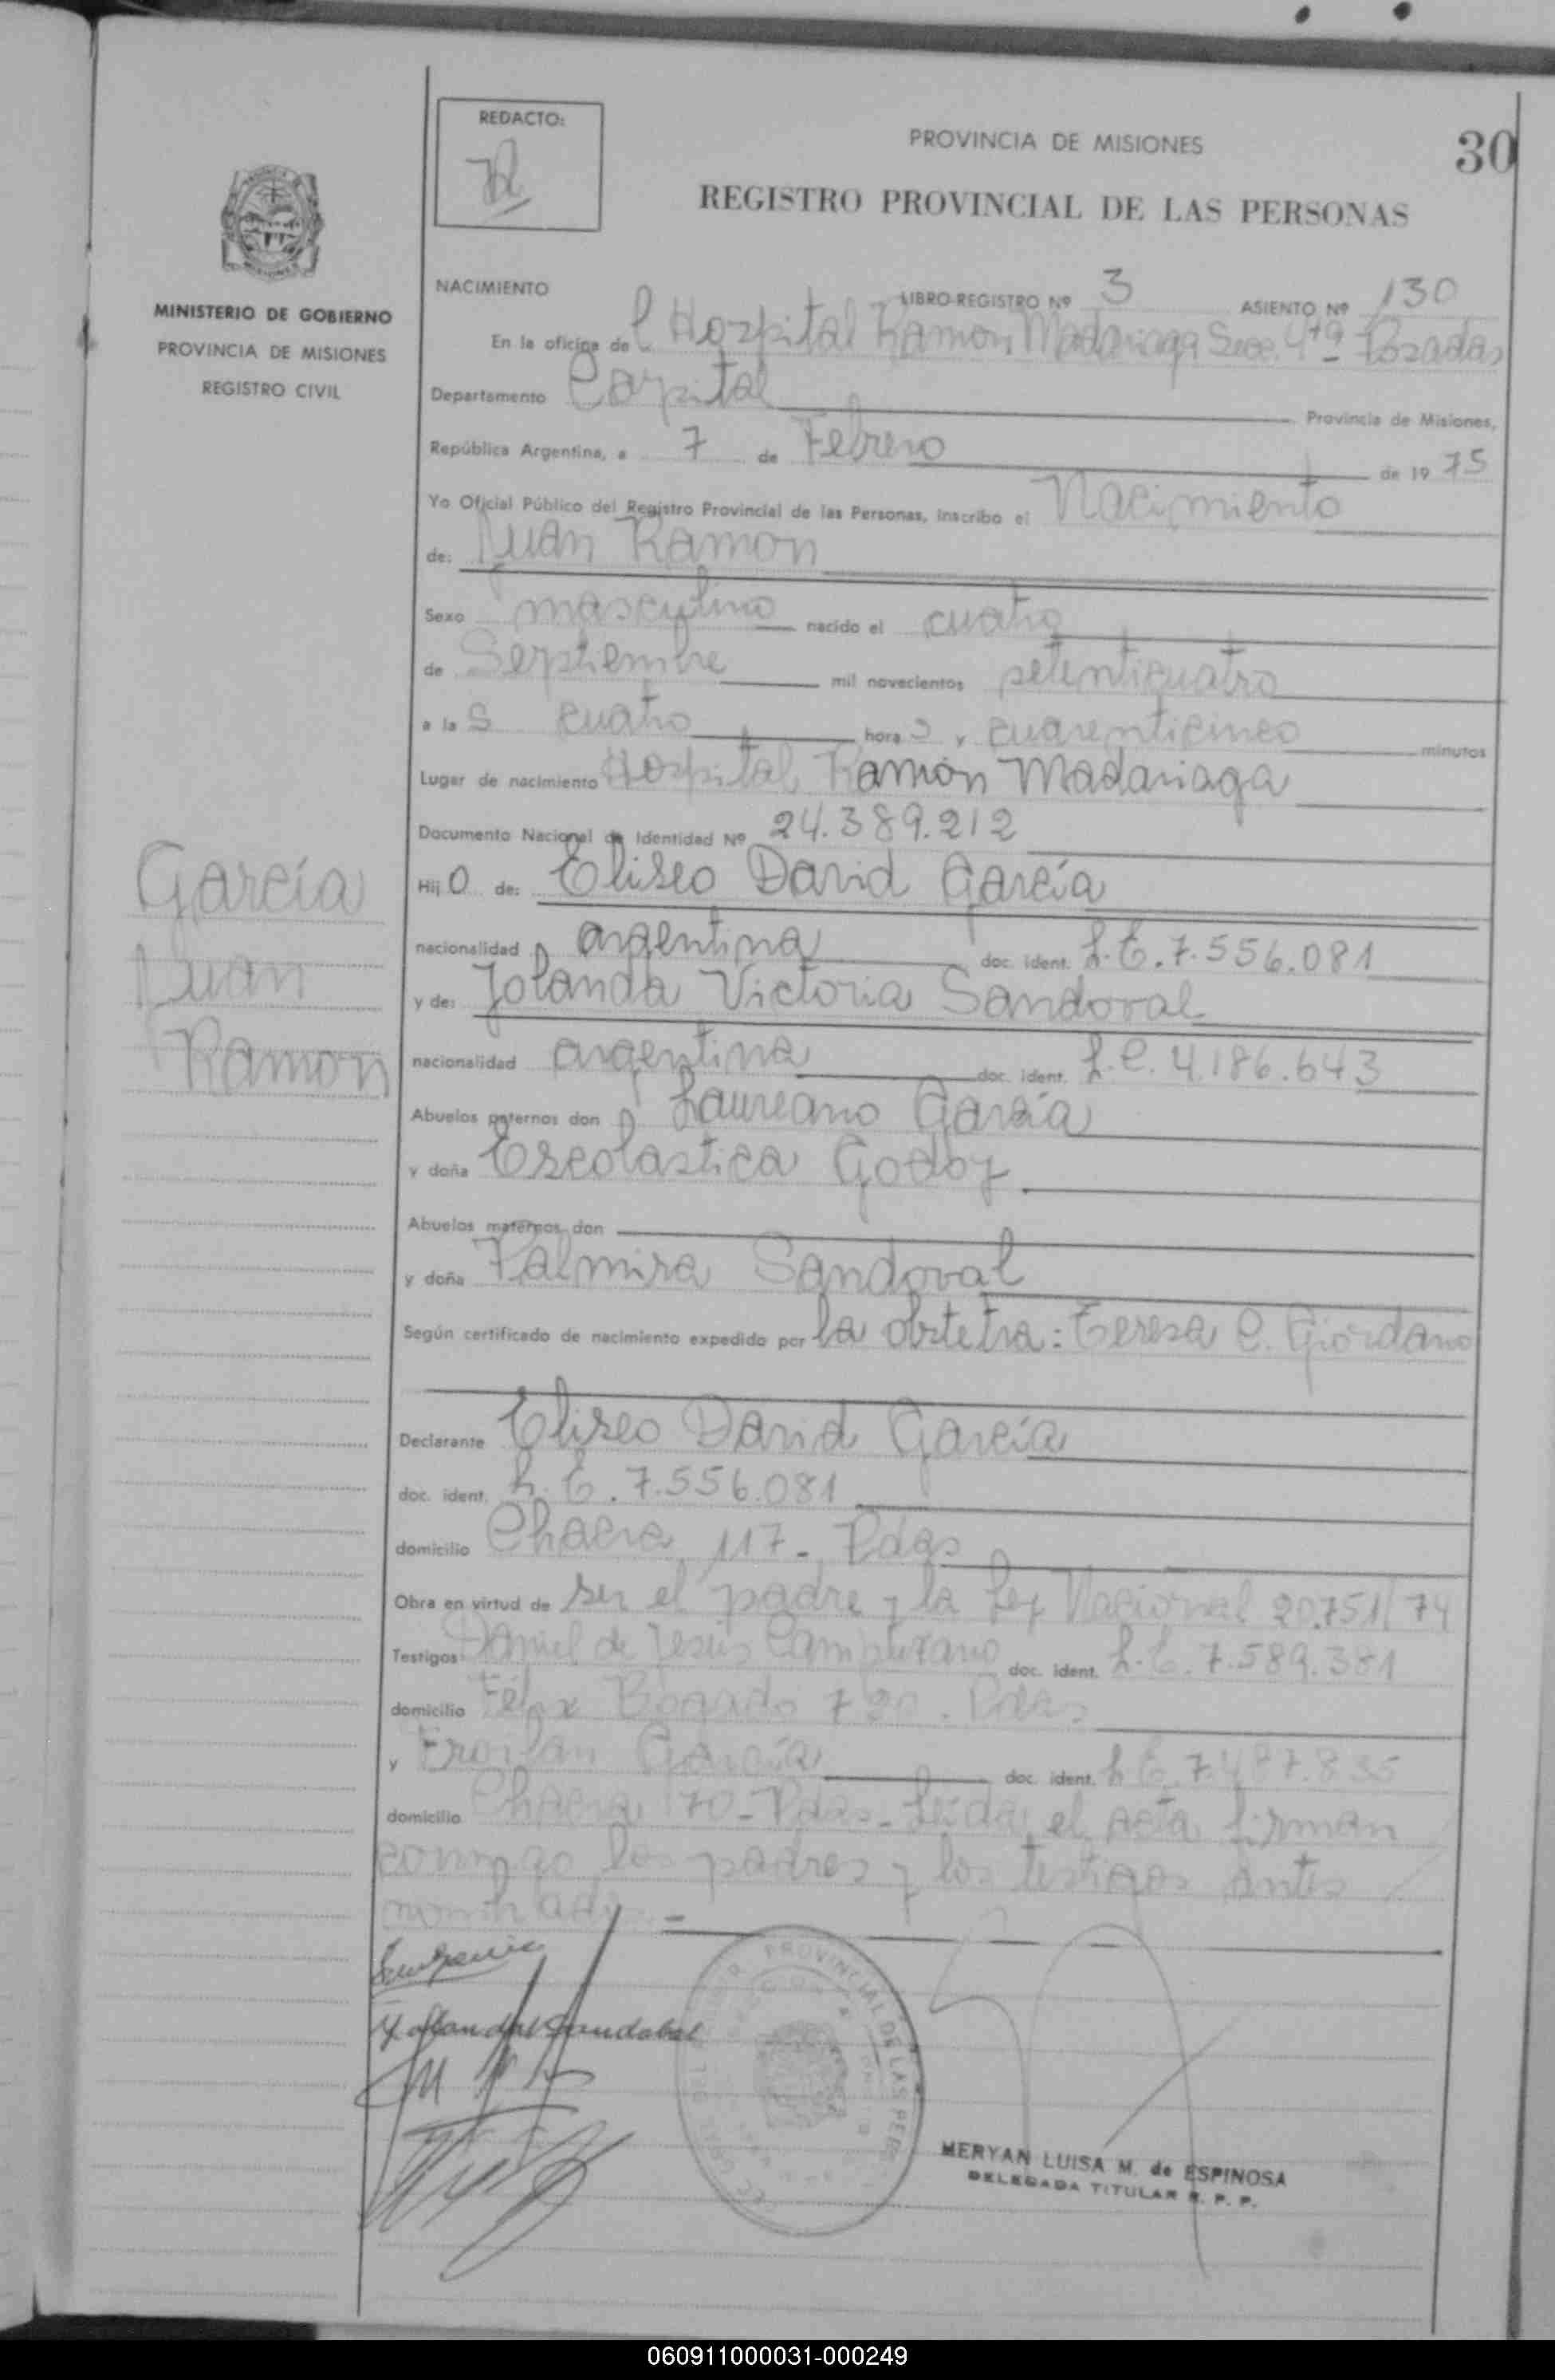 REDACTO:
PROVINCIA DE MISIONES
30
REGISTRO PROVINCIAL DE LAS PERSONAS
MINISTERIO DE GOBIERNO
PROVINCIA DE MISIONES
REGISTRO CIVIL
NACIMIENTO LIBRO-REGISTRO Nº 3 ASIENTO Nº 130
En la oficina del Hospital Ramon Madariaga Secc. 4ta Posadas
Departamento Capital Provincia de Misiones,
República Argentina, a 7 de Febrero de 19 75
Yo Oficial Público del Registro Provincial de las Personas, inscribo el Nacimiento
de: Juan Ramon
Sexo masculino nacido el cuatro
de Septiembre mil novecientos setenticuatro
a las cuatro horas y cuarenticinco minutos
Lugar de nacimiento Hospital Ramón Madariaga
Documento Nacional de Identidad Nº 24.389.212
Hijo de: Eliseo David García
nacionalidad argentina doc. ident. L.E. 7.556.081
y de: Jolanda Victoria Sandoval
nacionalidad argentina doc. ident. L.C. 4.186.643
Abuelos paternos don Laureano García
y doña Escolastica Godoy
Abuelos maternos don
y doña Palmira Sandoval
Según certificado de nacimiento expedido por la obstetra: Teresa C. Giordano
Declarante Eliseo David García
doc. ident. L.E. 7.556.081
domicilio Chacra 117 - Pdas
Obra en virtud de ser el padre y la Ley Nacional 20.751/74
Testigos Daniel de Jesus doc. ident. L.E. 7.589.381
domicilio Felix Bogado 720 - Pdas
y Froilan García doc. ident. L.E. 7.487.835
domicilio Chacra 170 - Pdas - Leida el acta firman
conmigo los padres y los testigos antes
nombrados -
García
Juan
Ramon
PROVINCIAL DE LAS PER
MERYAN LUISA M. de ESPINOSA
DELEGADA TITULAR R. P. P.
060911000031-000249